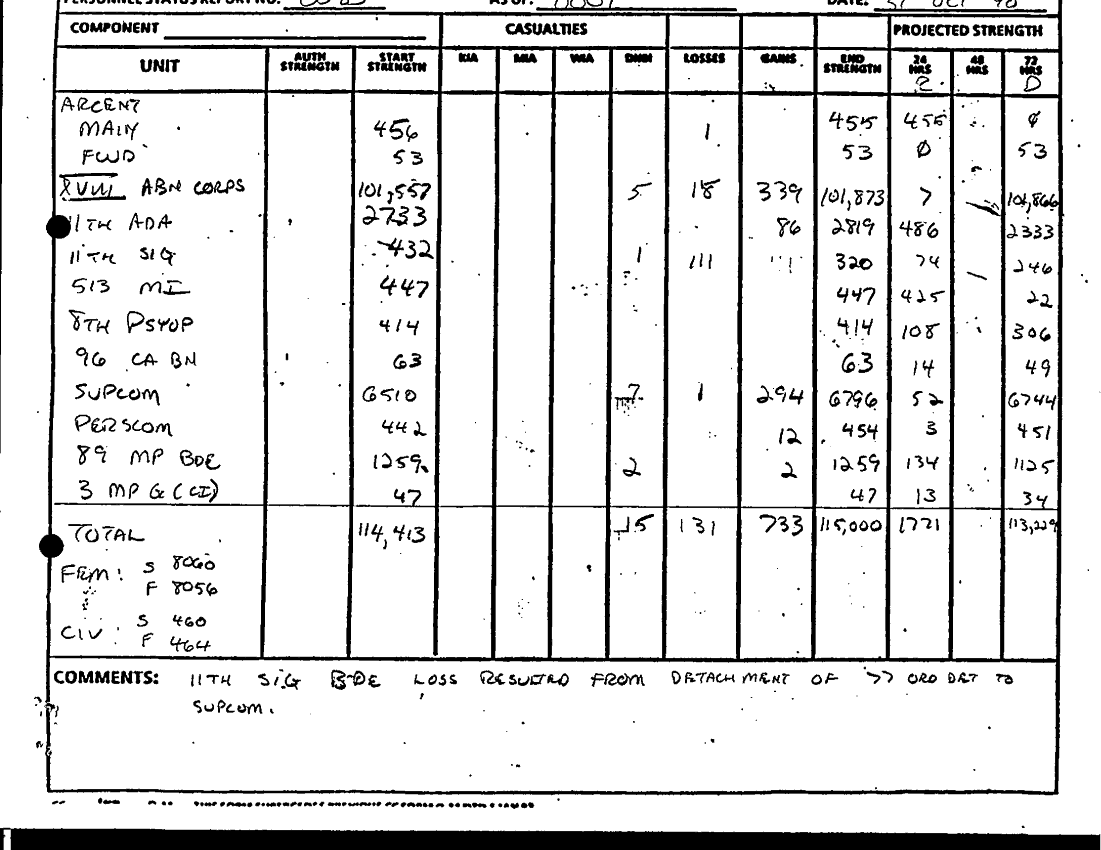 PERSONNEL STATUS REPORT NO. AS OF: 0001 DATE: 31 OCT 90
COMPONENT CASUALTIES PROJECTED STRENGTH
UNIT AUTH STRENGTH START STRENGTH KIA MIA WIA DNBI LOSSES GAINS END STRENGTH 24 HRS 48 HRS 72 HRS
R D
ARCENT
MAIN 456 1 455 455 0
FWD 53 53 0 53
XVIII ABN CORPS 101,557 5 18 339 101,873 7 101,866
11TH ADA 2733 86 2819 486 2333
11TH SIG 432 1 111 320 74 246
513 MI 447 447 425 22
8TH PSYOP 414 414 108 306
96 CA BN 63 63 14 49
SUPCOM 6510 7 1 294 6796 52 6744
PERSCOM 442 12 454 3 451
89 MP BDE 1259 2 2 1259 134 1125
3 MP G (CI) 47 47 13 34
TOTAL 114,413 15 131 733 115,000 1771 113,229
FEM: S 8060
F 8056
CIV: S 460
F 464
COMMENTS: 11TH SIG BDE LOSS RESULTED FROM DETACHMENT OF 77 ORD DET TO
SUPCOM.